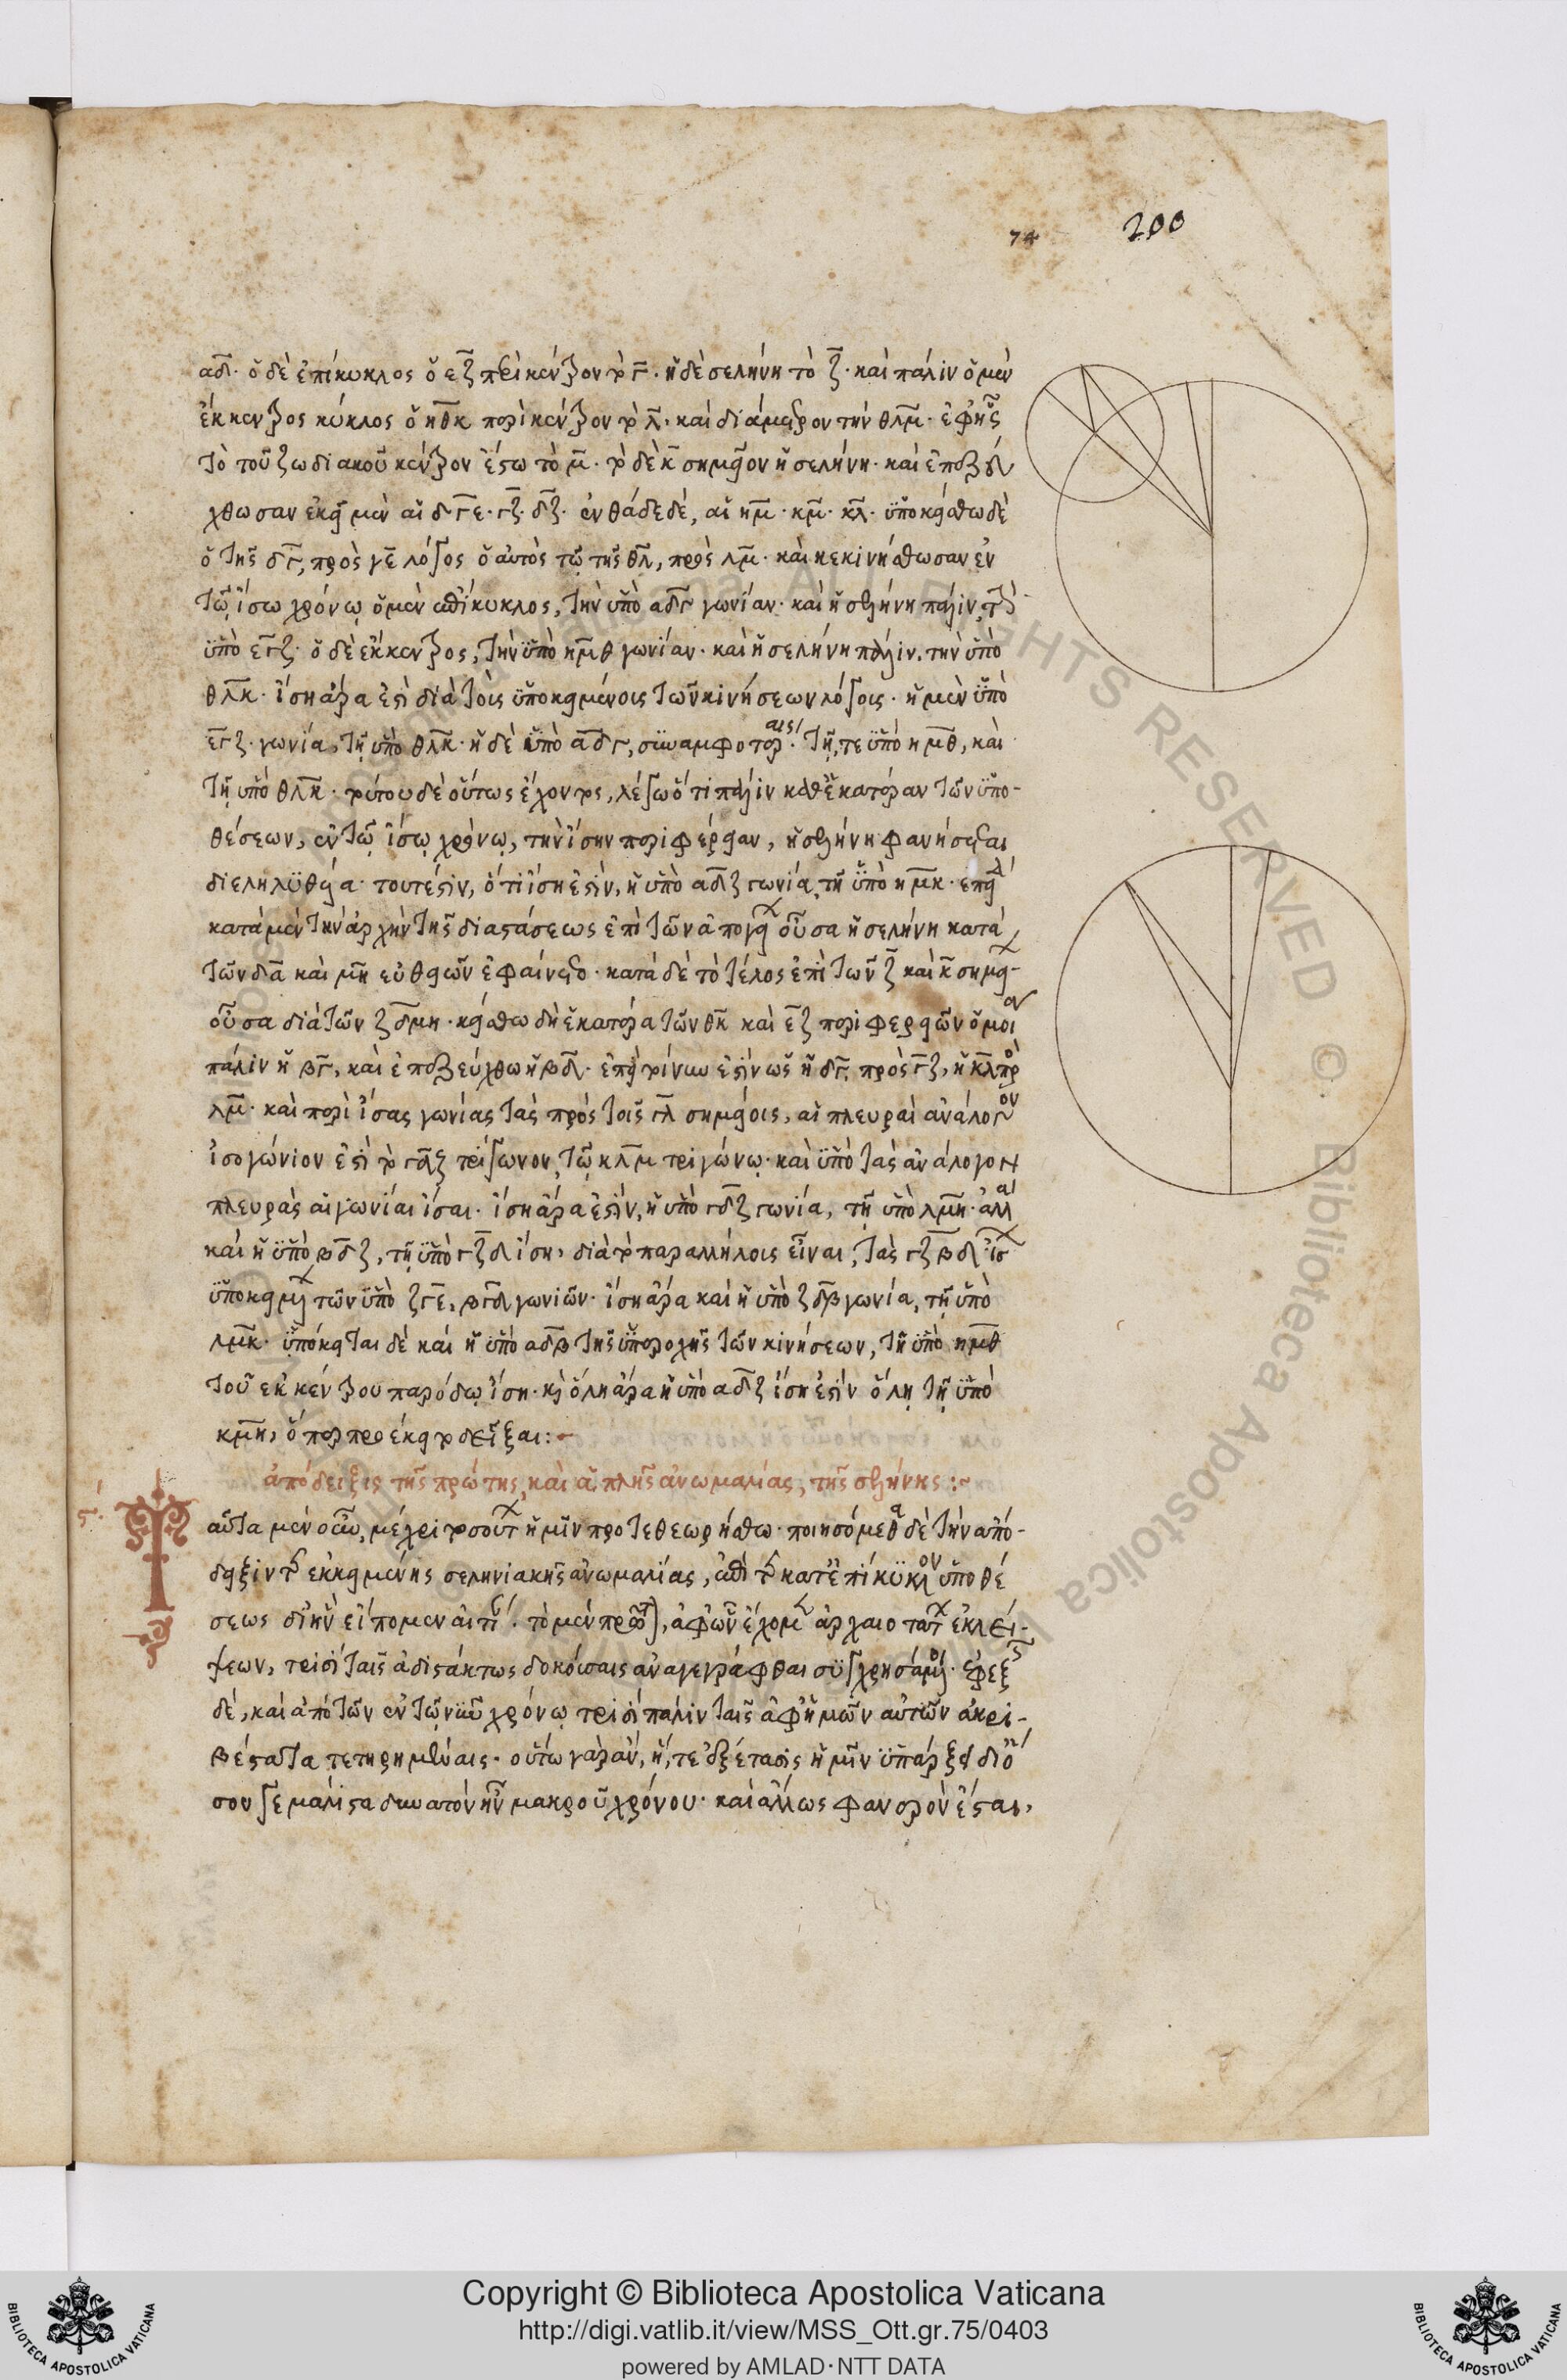 74 200
αδ· ὁ δὲ ἐπίκυκλος ὁ εζ περὶ κέντρον τὸ γ· ἡ δὲ σελήνη τὸ ζ· καὶ πάλιν ὁ μὲν
ἔκκεντρος κύκλος ὁ ηθκ περὶ κέντρον τὸ λ· καὶ διάμετρον τὴν θλμ· ἐφ' ἧς
τὸ τοῦ ζωδιακοῦ κέντρον ἔστω τὸ μ· τὸ δὲ κ σημεῖον ἡ σελήνη· καὶ ἐπεζεύ
χθωσαν ἐκεῖ μὲν αἱ δγε· γζ· δζ· ἐνθάδε δέ, αἱ ημ· κμ· κλ· ὑποκείσθω δὲ
ὁ τῆς δγ, πρὸς γε λόγος ὁ αὐτὸς τῷ τῆς θλ, πρὸς λμ· καὶ κεκινήσθωσαν ἐν
τῷ ἴσῳ χρόνῳ ὁ μὲν ἐπίκυκλος, τὴν ὑπὸ αδγ γωνίαν· καὶ ἡ σελήνη πάλιν, τὴν
ὑπὸ εγζ· ὁ δὲ ἔκκεντρος, τὴν ὑπὸ ημθ γωνίαν· καὶ ἡ σελήνη πάλιν, τὴν ὑπὸ
θλκ· ἴση ἄρα ἐστὶ διὰ τοὺς ὑποκειμένους τῶν κινήσεων λόγους· ἡ μὲν ὑπὸ
εγζ· γωνία, τῇ ὑπὸ θλκ· ἡ δὲ ὑπὸ αδγ, συναμφοτέραις· τῇ, τε ὑπὸ ημθ, καὶ
τῇ ὑπὸ θλκ· τούτου δὲ οὕτως ἔχοντος, λέγω ὅτι πάλιν καθ' ἑκατέραν τῶν ὑπο-
θέσεων, ἐν τῷ ἴσῳ χρόνῳ, τὴν ἴσην περιφέρειαν, ἡ σελήνη φανήσεται
διεληλυθυῖα· τουτέστιν, ὅτι ἴση ἐστὶν, ἡ ὑπὸ αδζ γωνία, τῇ ὑπὸ ημκ· ἐπειδὴ
κατὰ μὲν τὴν ἀρχὴν τῆς διαστάσεως ἐπὶ τῶν ἀπογείων οὖσα ἡ σελήνη κατὰ
τῶν δα καὶ μη εὐθειῶν ἐφαίνετο· κατὰ δὲ τὸ τέλος ἐπὶ τῶν ζ καὶ κ σημεί-
οὖσα διὰ τῶν ζδμη· κείσθω δὴ ἑκατέρα τῶν θκ καὶ εζ περιφερειῶν ὁμοία
πάλιν ἡ βγ, καὶ ἐπεζεύχθω ἡ βδ· ἐπεὶ τοίνυν ἐστὶν ὡς ἡ δγ, πρὸς γζ, ἡ κλ πρὸς
λμ· καὶ περὶ ἴσας γωνίας τὰς πρὸς τοῖς γλ σημείοις, αἱ πλευραὶ ἀνάλογον
ἰσογώνιον ἐστὶ τὸ γδζ τρίγωνον, τῷ κλμ τριγώνῳ· καὶ ὑπὸ τὰς ἀνάλογον
πλευρὰς αἱ γωνίαι ἴσαι· ἴση ἄρα ἐστὶν, ἡ ὑπὸ γδζ γωνία, τῇ ὑπὸ λμη· ἀλλὰ
καὶ ἡ ὑπὸ βδζ, τῇ ὑπὸ γζδ ἴση, διὰ τὸ παραλλήλους εἶναι, τὰς γζ βδ ἴσων
ὑποκειμένων τῶν ὑπὸ ζγε, βγδ γωνιῶν· ἴση ἄρα καὶ ἡ ὑπὸ ζδβ γωνία, τῇ ὑπὸ
λμκ· ὑπόκειται δὲ καὶ ἡ ὑπὸ αδβ τῆς ὑπεροχῆς τῶν κινήσεων, τῇ ὑπὸ ημθ
τοῦ ἐκκέντρου παρόδῳ ἴση· καὶ ὅλη ἄρα ἡ ὑπὸ αδζ ἴση ἐστὶν ὅλῃ τῇ ὑπὸ
κμη, ὅπερ προέκειτο δεῖξαι:-
ἀπόδειξις τῆς πρώτης, καὶ ἁπλῆς ἀνωμαλίας, τῆς σελήνης :~
ϛ΄. Ταῦτα μὲν οὖν, μέχρι τοσούτων ἡμῖν προτεθεωρήσθω· ποιησόμεθα δὲ τὴν ἀπό-
δειξιν τῆς ἐκκειμένης σεληνιακῆς ἀνωμαλίας, ἐπὶ τῆς κατ' ἐπίκυκλον ὑποθέ
σεως δι' ἣν εἴπομεν αἰτίαν· τὸ μὲν πρῶτον, ἀφ' ὧν ἔχομεν ἀρχαιοτάτων ἐκλεί-
ψεων, τρισὶ ταῖς ἀδιστάκτως δοκούσαις ἀναγεγράφθαι συγχρησάμενοι· ἐφεξῆς
δὲ, καὶ ἀπὸ τῶν ἐν τῷ νῦν χρόνῳ τρισὶ πάλιν ταῖς ἀφ' ἡμῶν αὐτῶν ἀκρι-
βέστατα τετηρημέναις· οὕτω γὰρ ἂν, ἥ, τε ἐξέτασις ἡμῖν ὑπάρξει δι' ὅ
σου γε μάλιστα δυνατὸν ἦν μακροῦ χρόνου· καὶ ἄλλως φανερὸν ἔσται,
Copyright © Biblioteca Apostolica Vaticana
http://digi.vatlib.it/view/MSS_Ott.gr.75/0403
powered by AMLAD·NTT DATA